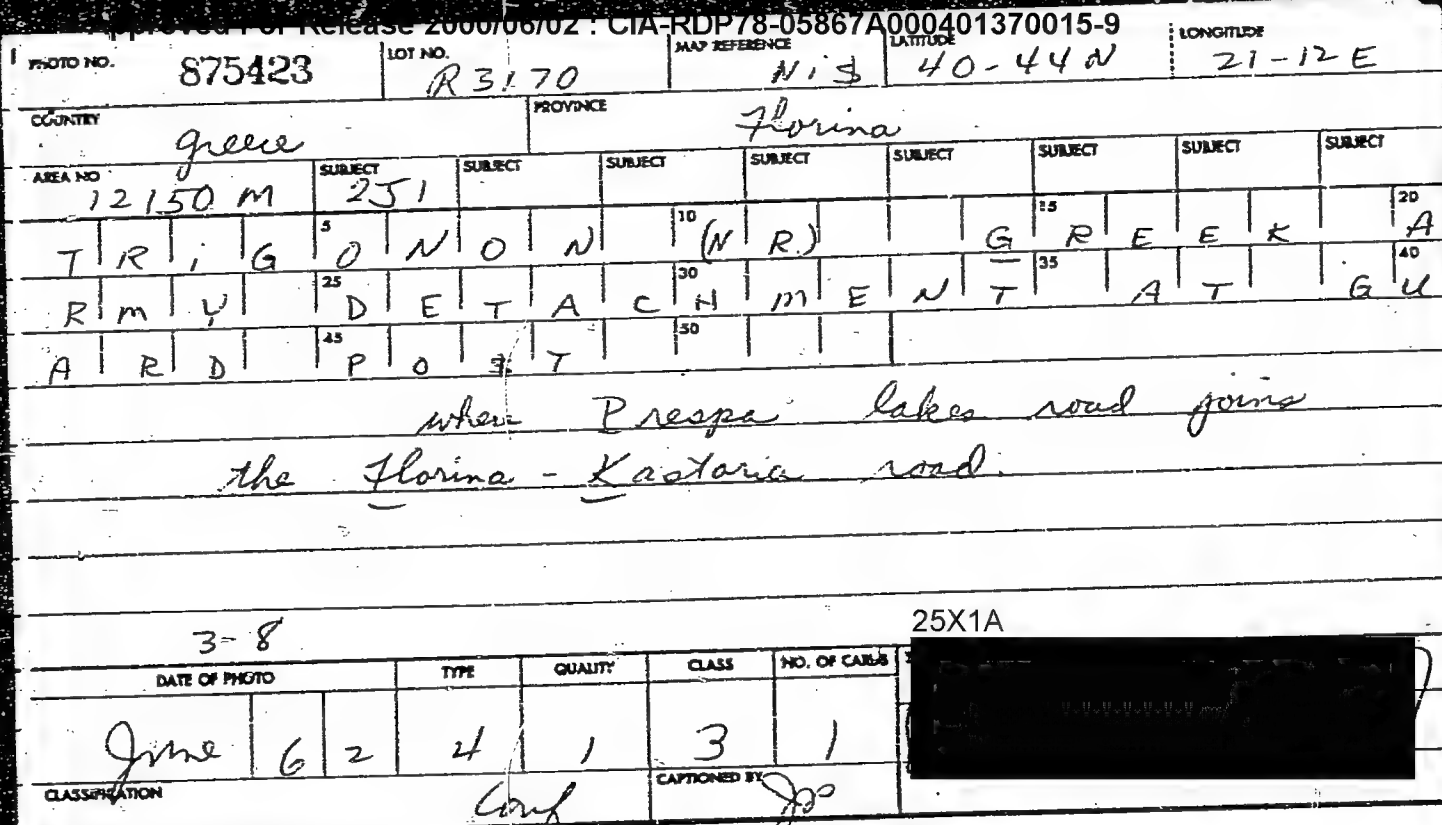 Approved For Release 2000/06/02 : CIA-RDP78-05867A000401370015-9
PHOTO NO. 875423 LOT NO. R3170 MAP REFERENCE NiŠ LATITUDE 40-44N LONGITUDE 21-12E
COUNTRY Greece PROVINCE Florina
AREA NO 12150 M SUBJECT 251 SUBJECT SUBJECT SUBJECT SUBJECT SUBJECT SUBJECT SUBJECT
5 10 15 20
TRiGONON (NR.) GREEK A
25 30 35 40
RMY DETACHMENT AT GU
45 50
ARD POST
where Prespa lakes road joins
the Florina - Kastoria road.
3-8
25X1A
DATE OF PHOTO TYPE QUALITY CLASS NO. OF CARDS
June 62 4 1 3 1
CLASSIFICATION Conf CAPTIONED BY